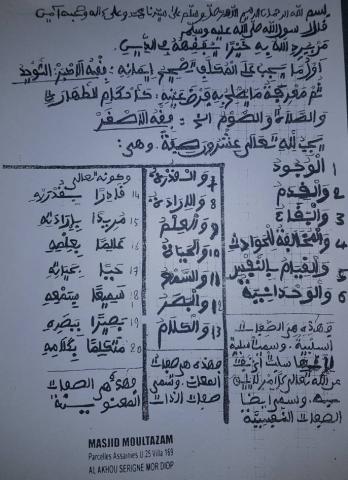 بسم الله الرحمن الرحيم وعلى آله وصحبه آمين
قال رسول الله صلى الله عليه وسلم
من يرد الله به خيرا يفقهه في الدين
أول ما يجب على المكلف تصحيح إيمانه: فقه الأكبر التوحيد
ثم معرفة ما يصلح به فرض عينه: كأحكام الطهارة
والصلاة والصوم الخ: فقه الأصغر
يجب لله تعالى عشرون صفة: وهي:
1 الوجود
2 والقدم
3 والبقاء
4 والمخالفة للحوادث
5 والقيام بالنفس
6 والوحدانية
وهذه هي الصفات
السلبية. وسميت سلبية
الصفات النفسية
7 والقدرة
8 والإرادة
9 والعلم
10 والحياة
11 والسمع
12 والبصر
13 والكلام
وهذه هي صفات
المعاني. وتسمى
صفات الذات
وكونه تعالى
14 قادرا بقدرته
15 مريدا بإرادته
16 عالما بعلمه
17 حيا بحياته
18 سميعا بسمعه
19 بصيرا ببصره
20 متكلما بكلامه
وهذه هي الصفات
المعنوية
MASJID MOULTAZAM
Parcelles Assainies U.25 Villa 169
AL AKHOU SERIGNE MOR DIOP